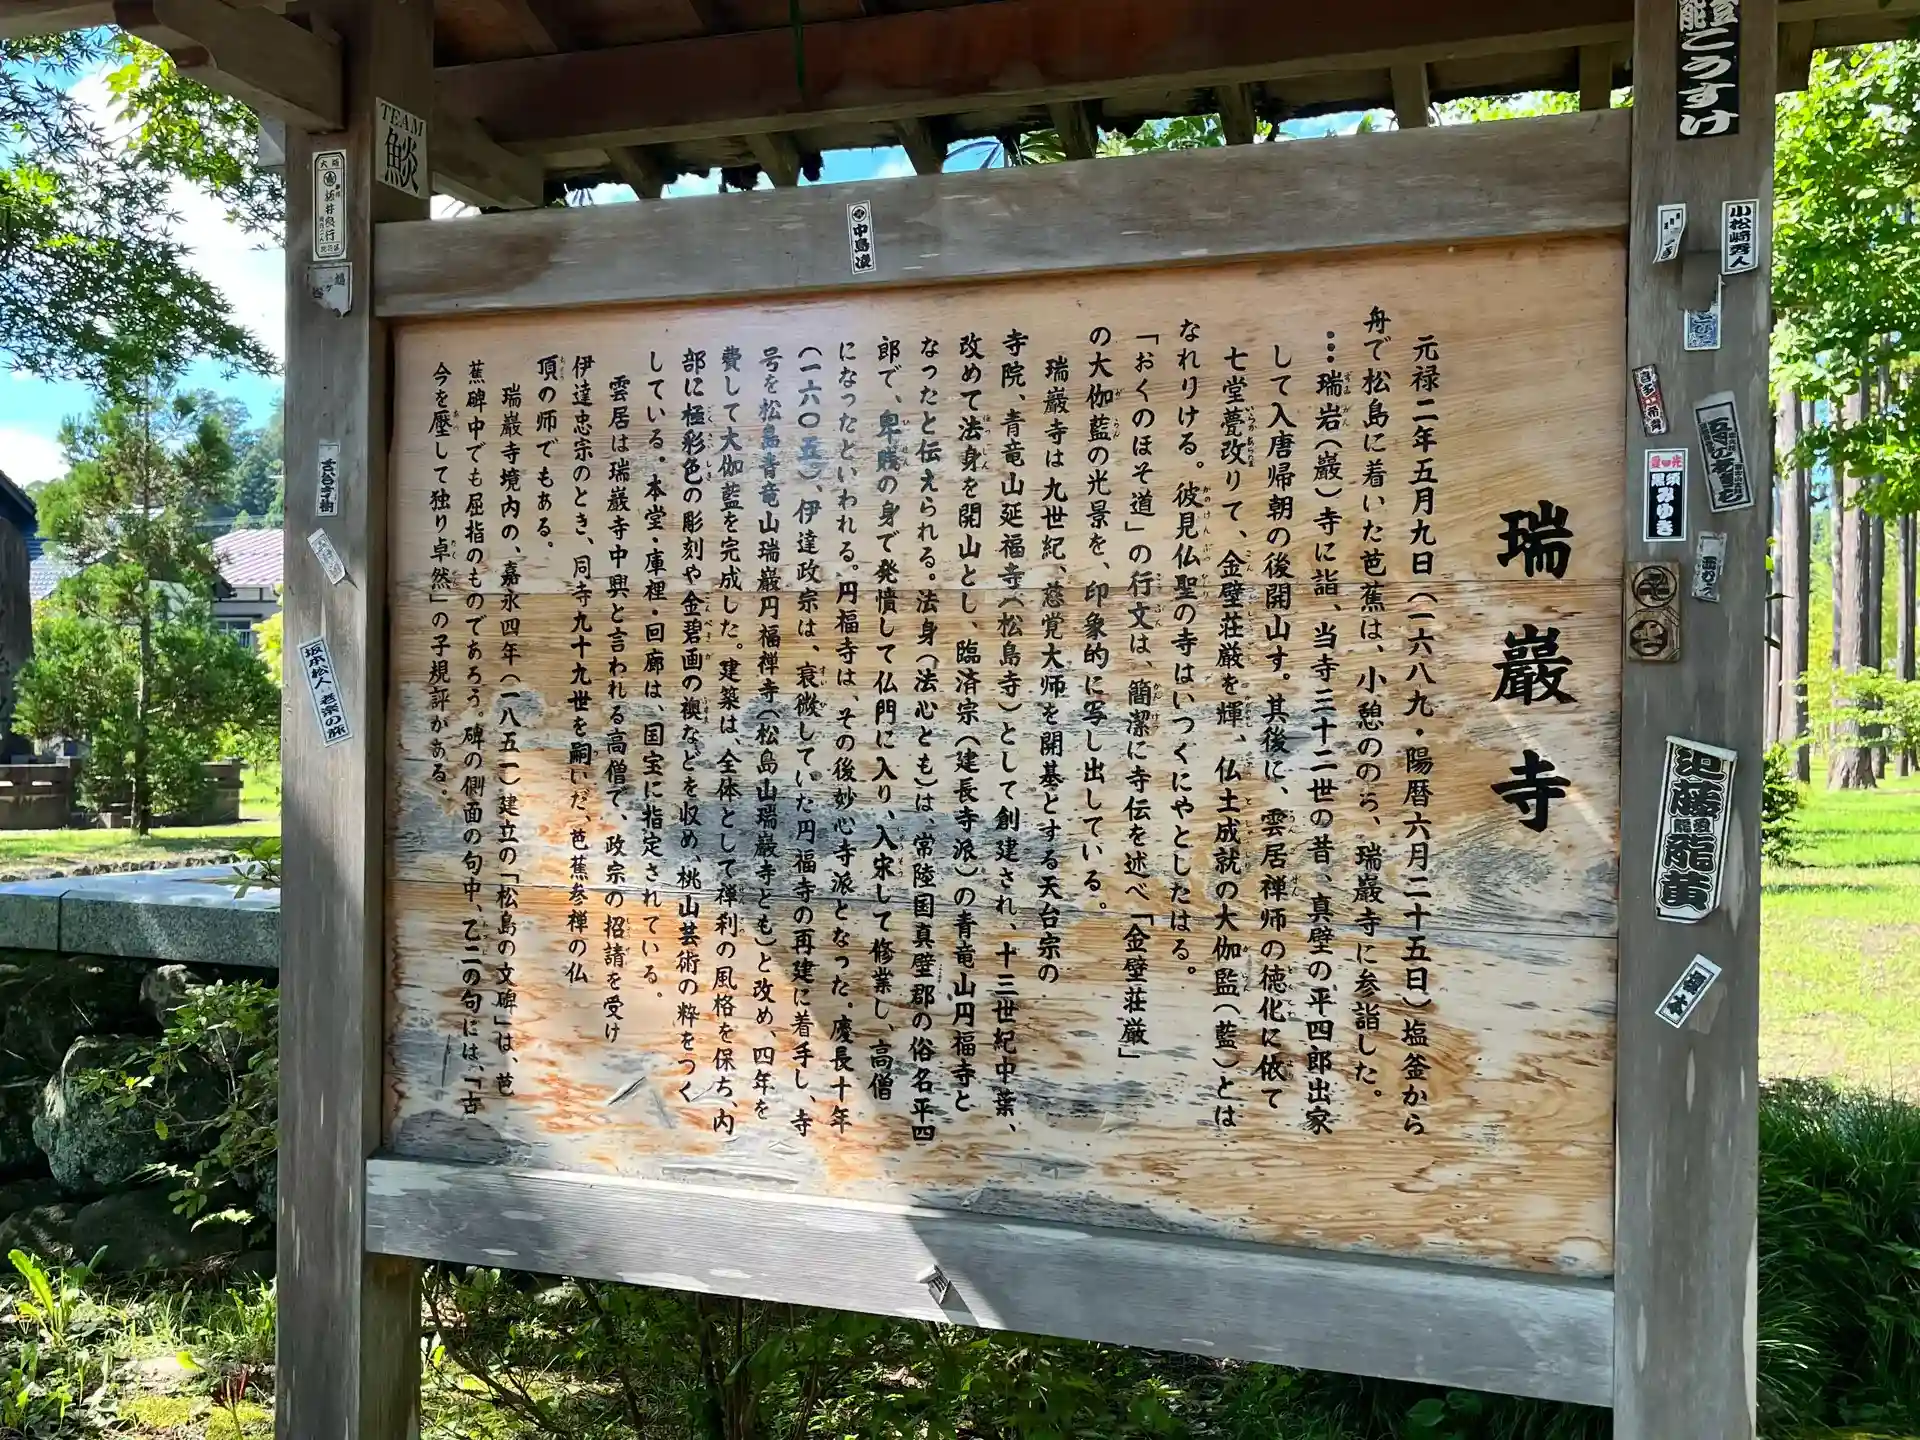 瑞巖寺
元禄二年五月九日(一六八九・陽暦六月二十五日)塩釜から
舟で松島に着いた芭蕉は、小憩ののち、瑞巖寺に参詣した。
…瑞岩(巖)寺に詣、当寺三十二世の昔、真壁の平四郎出家
して入唐帰朝の後開山す。其後に、雲居禅師の徳化に依て
七堂甍改りて、金壁荘厳を輝、仏土成就の大伽監(藍)とは
なれりける。彼見仏聖の寺はいづくにやとしたはる。
「おくのほそ道」の行文は、簡潔に寺伝を述べ「金壁荘厳」
の大伽藍の光景を、印象的に写し出している。
瑞巖寺は九世紀、慈覚大師を開基とする天台宗の
寺院、青竜山延福寺(松島寺)として創建され、十三世紀中葉、
改めて法身を開山とし、臨済宗(建長寺派)の青竜山円福寺と
なったと伝えられる。法身(法心とも)は、常陸国真壁郡の俗名平四
郎で、卑賤の身で発憤して仏門に入り、入宋して修業し、高僧
になったといわれる。円福寺は、その後妙心寺派となった。慶長十年
(一六〇五)、伊達政宗は、衰微していた円福寺の再建に着手し、寺
号を松島青竜山瑞巖円福禅寺(松島山瑞巖寺とも)と改め、四年を
費して大伽藍を完成した。建築は、全体として禅刹の風格を保ち、内
部に極彩色の彫刻や金碧画の襖などを収め、桃山芸術の粋をつく
している。本堂・庫裡・回廊は、国宝に指定されている。
雲居は瑞巖寺中興と言われる高僧で、政宗の招請を受け
伊達忠宗のとき、同寺九十九世を嗣いだ、芭蕉参禅の仏
頂の師でもある。
瑞巖寺境内の、嘉永四年(一八五一)建立の「松島の文碑」は、芭
蕉碑中でも屈指のものであろう。碑の側面の句中、乙二の句には、「古
今を壓して独り卓然」の子規評がある。
TEAM
鯲
中島凌
坂本松人
老楽の旅
登能こうすけ
小松崎秀人
黒須みゆき